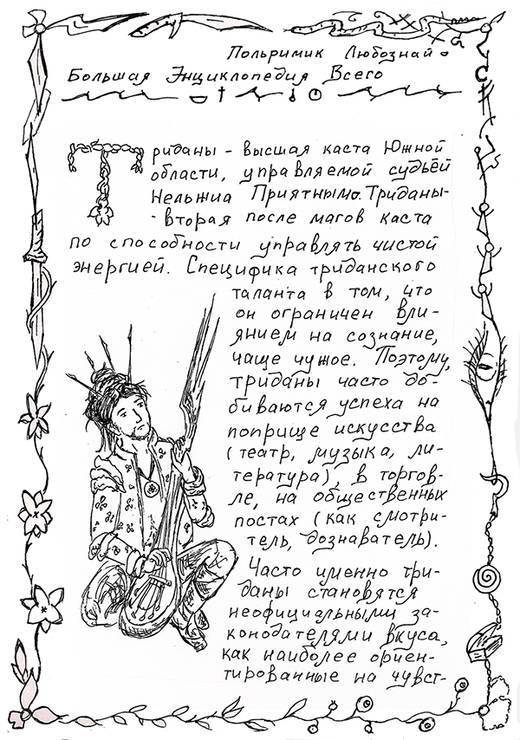 Польримик Любознай
Большая Энциклопедия Всего
Триданы - высшая каста Южной
области, управляемой судьёй
Нельжиа Приятным. Триданы-
- вторая после магов каста
по способности управлять чистой
энергией. Специфика триданского
таланта в том, что
он ограничен вли-
янием на сознание,
чаще чужое. Поэтому,
триданы часто до-
биваются успеха на
поприще искусства
(театр, музыка, ли-
тература), в торгов-
ле, на общественных
постах (как смотри-
тель, дознаватель).
Часто именно три-
даны становятся
неофициальными за-
конодателями вкуса,
как наиболее ориен-
тированные на чувст-